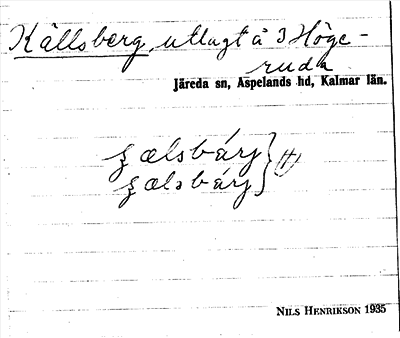 Källsberg, utlagt å 3 Höge-
ruda
Järeda sn, Aspelands hd, Kalmar län.
ʂælsbárj
ʂælsbárj } (H)
NILS HENRIKSON 1935